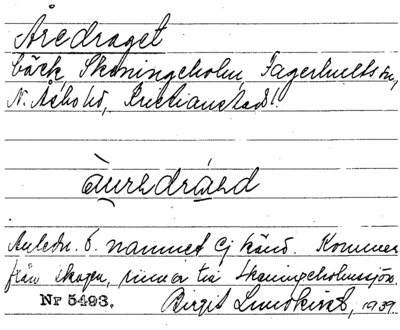 Åredraget
bäck, Skäningeholm, Fagerhults sn,
N. Åsbo hd, Kristianstads l.
Anledn. t. namnet ej känd. Kommer
från skogen, rinner till Skäningeholmssjön.
Nr 5493. Birgit Lundkvist, 1939.